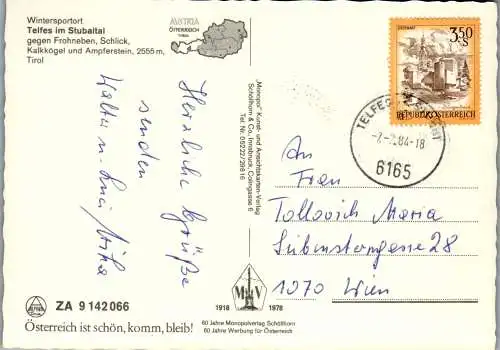 Wintersportort
Telfes im Stubaital
gegen Frohneben, Schlick,
Kalkkögel und Ampferstein, 2555 m,
Tirol
AUSTRIA
ÖSTERREICH
TIROL
3,50
S
REPUBLIK ÖSTERREICH
84-18
6165
Herzliche Grüße
senden
Walter u.
"Monopol" Kunst- und Ansichtskarten-Verlag
Schöllhorn & Co., Innsbruck, Colingasse 6
Tel. Nr. 05222/29816
An
Frau
Maria
Siebensterngasse 28
1070 Wien
ZA 9 142 066
Österreich ist schön, komm, bleib!
1918
1978
60 Jahre Monopolverlag Schöllhorn
60 Jahre Werbung für Österreich